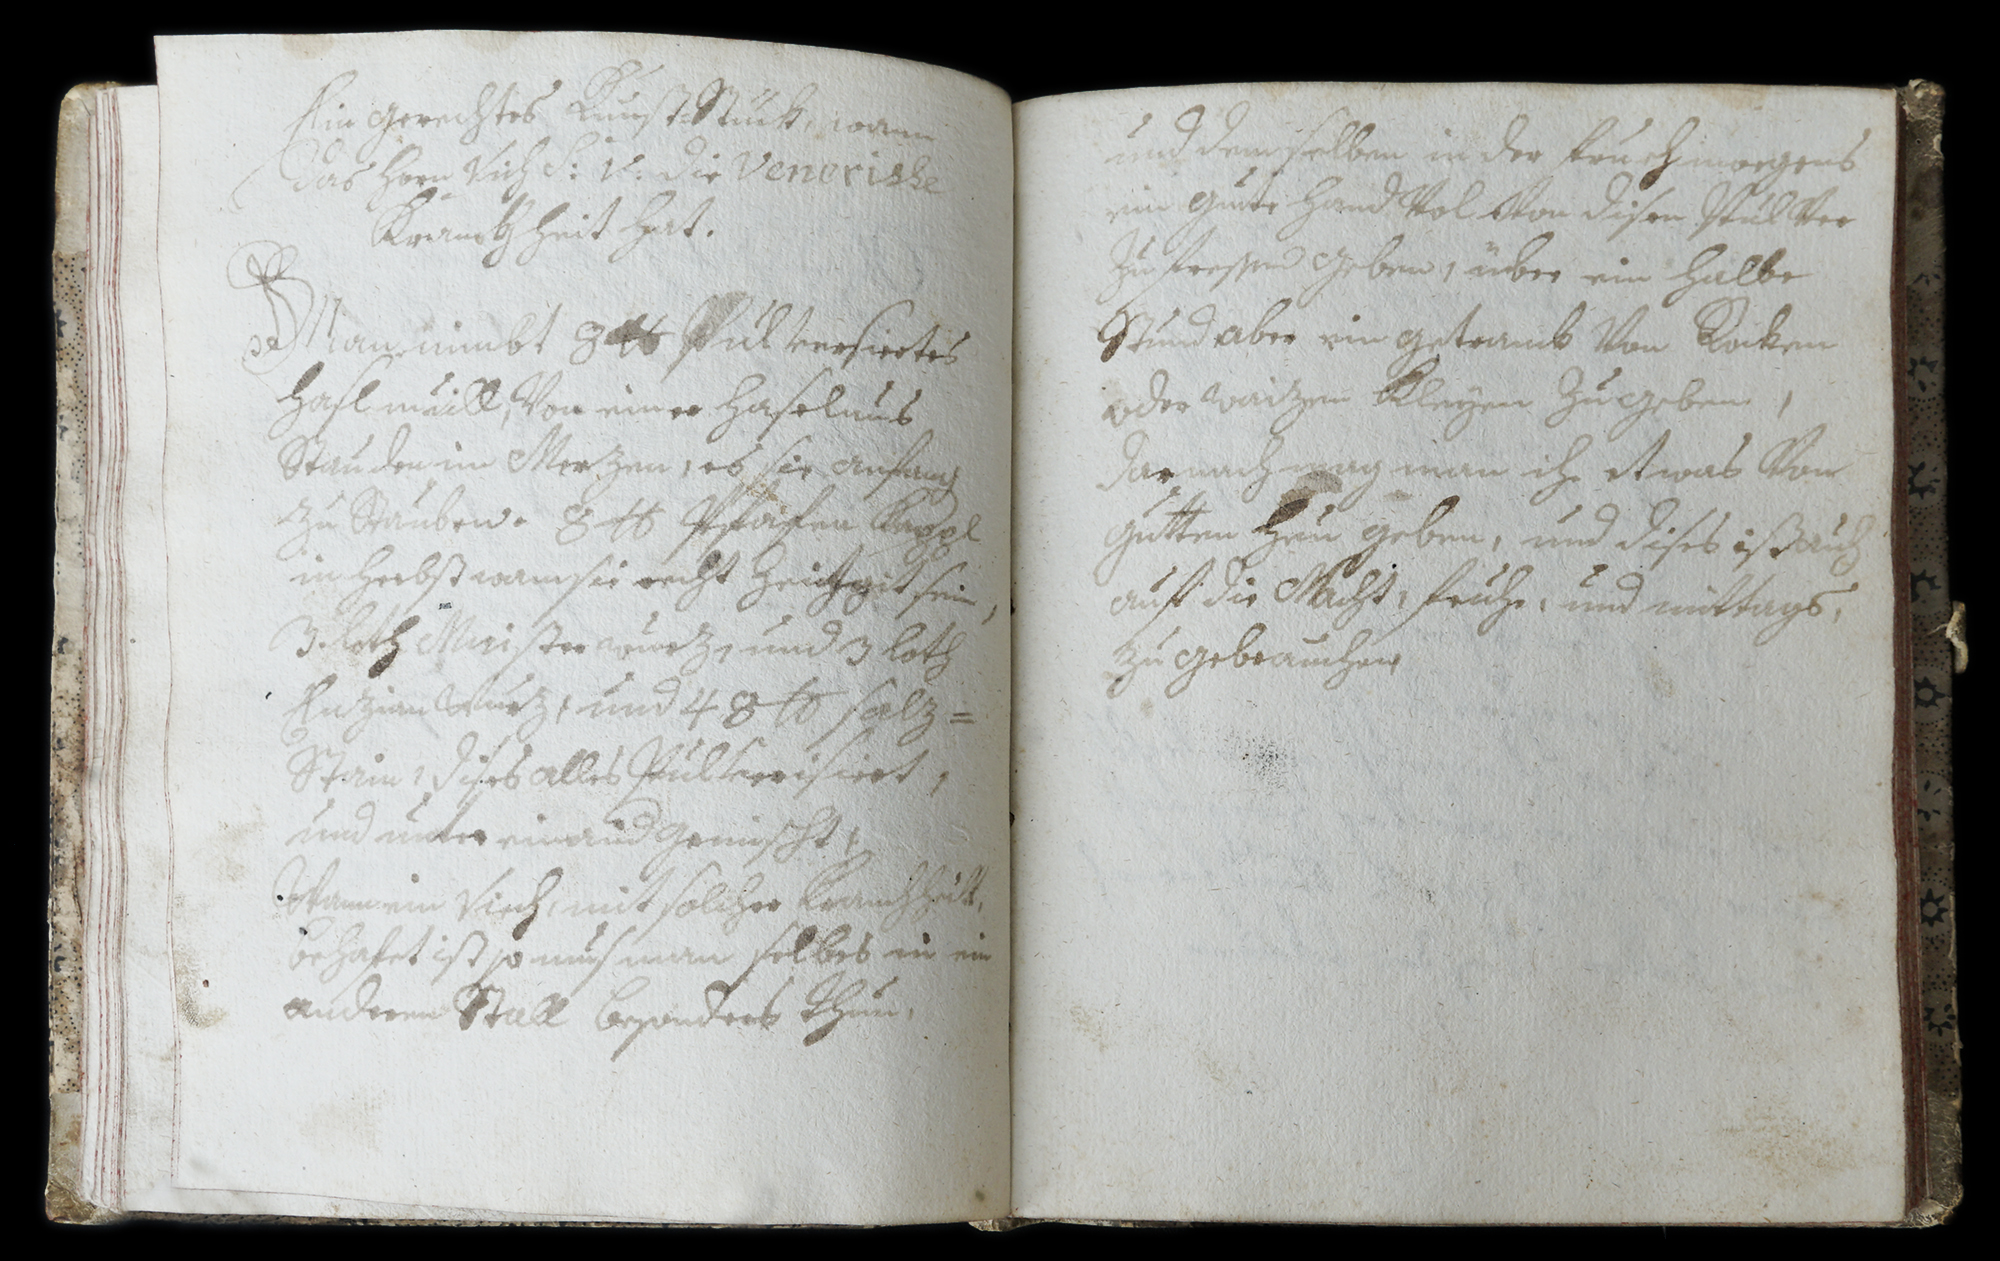 Ein gerechtes Kunst Stuckh, wann
das Horn Vich S: V: die Venerishe
Kranckheit hat.
Man nimbt 8 ℔ Pulversiertes
Hasl mill, Von einer Haselnus
Stauden im Mertzen, eh sie anfang
zu Stauben. 8 ℔ Pfafen Kappl
in Herbst wann sie recht zeitig sein,
3. loth Meister wurtz, und 3 loth
Enzian Wurtz, und 48 ℔ salz=
Stain, dises alles Pulverisiert,
und unter einand gemischt,
Wann ein Viech, mit solcher Kranckheit,
behafet ist so mus man selbes in ein
anderen Stall besonders Thun,
und dem selben in der frueh morgens
ein gute Hand Vol Von disen Pulver
Zu fressen geben, über ein halbe
Stund aber ein getranck Von Rocken
oder waitzen Kleyen zu geben,
darnach mag man ihr etwas Von
gutten Heu geben, und dises ist auch
auf die Nacht, fruhe, und mittags,
zu gebrauchen